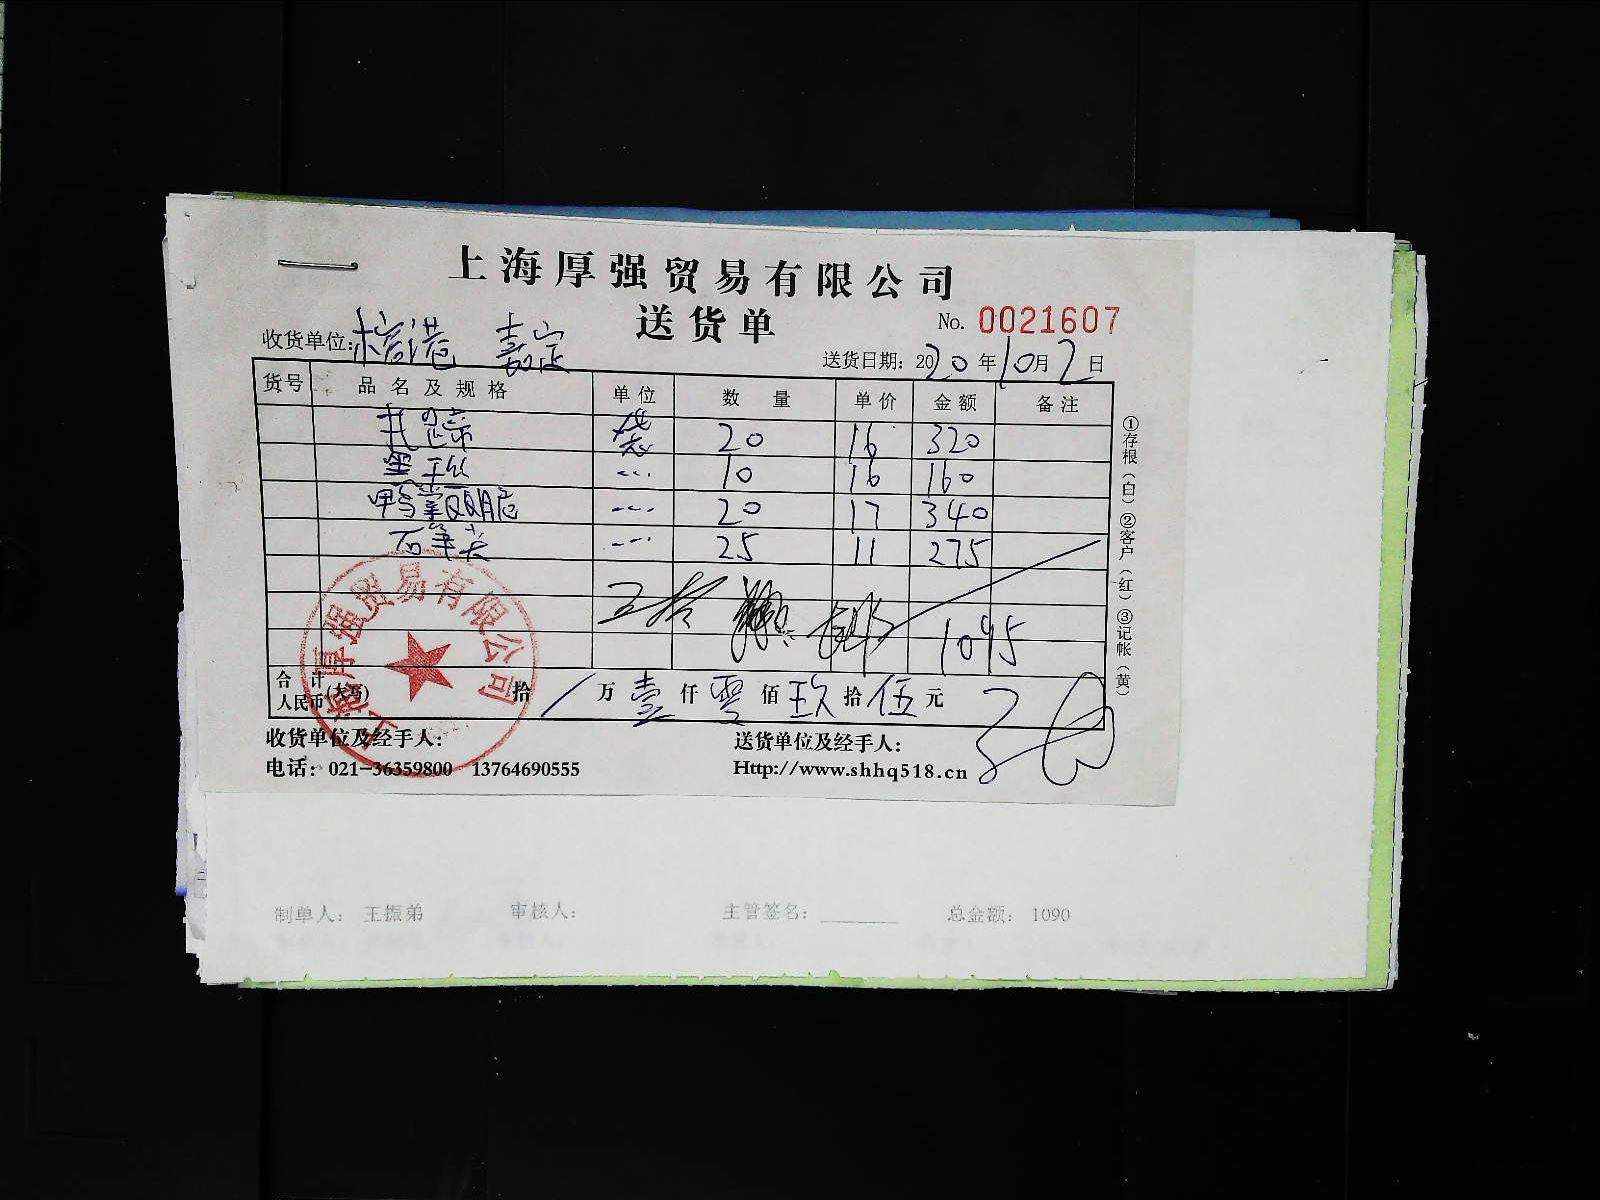 上海厚强贸易有限公司
送货单
No. 0021607
收货单位: 榕港 嘉定
送货日期: 2020年10月2日
货号 品名及规格 单位 数量 单价 金额 备注
袋 20 16 320
〃 10 16 160
鸭掌 〃 20 17 340
石笋尖 〃 25 11 275
1095
合计人民币(大写) 拾 / 万 壹 仟 零 佰 玖 拾 伍 元
收货单位及经手人: 送货单位及经手人:
电话: 021-36359800 13764690555 Http://www.shhq518.cn
①存根(白)②客户(红)③记帐(黄)
上海厚强贸易有限公司
制单人: 王振弟 审核人: 主管签名: ________ 总金额: 1090